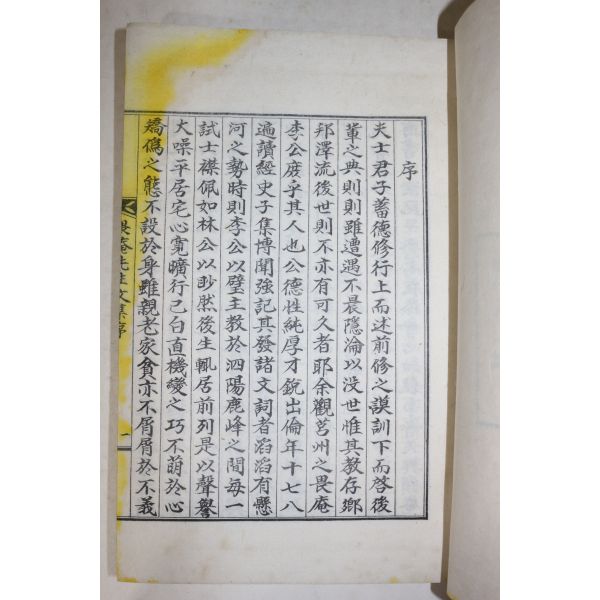 序
夫士君子蓄德修行上而述前修之謨訓下而啓後
輩之典則則雖遭遇不長隱淪以没世惟其教存鄉
邦澤流後世則不亦有可久者耶余觀莒州之畏庵
李公庶乎其人也公德性純厚才銳出倫年十七八
遍讀經史子集博聞強記其發諸文詞者滔滔有懸
河之勢時則李公以璧主教於泗陽鹿峰之間每一
試士襟佩如林公以眇然後生輒居前列是以聲譽
大噪平居宅心寬曠行己白直機變之巧不萌於心
矯僞之態不設於身雖親老家貧亦不屑屑於不義
畏庵先生文集序
一